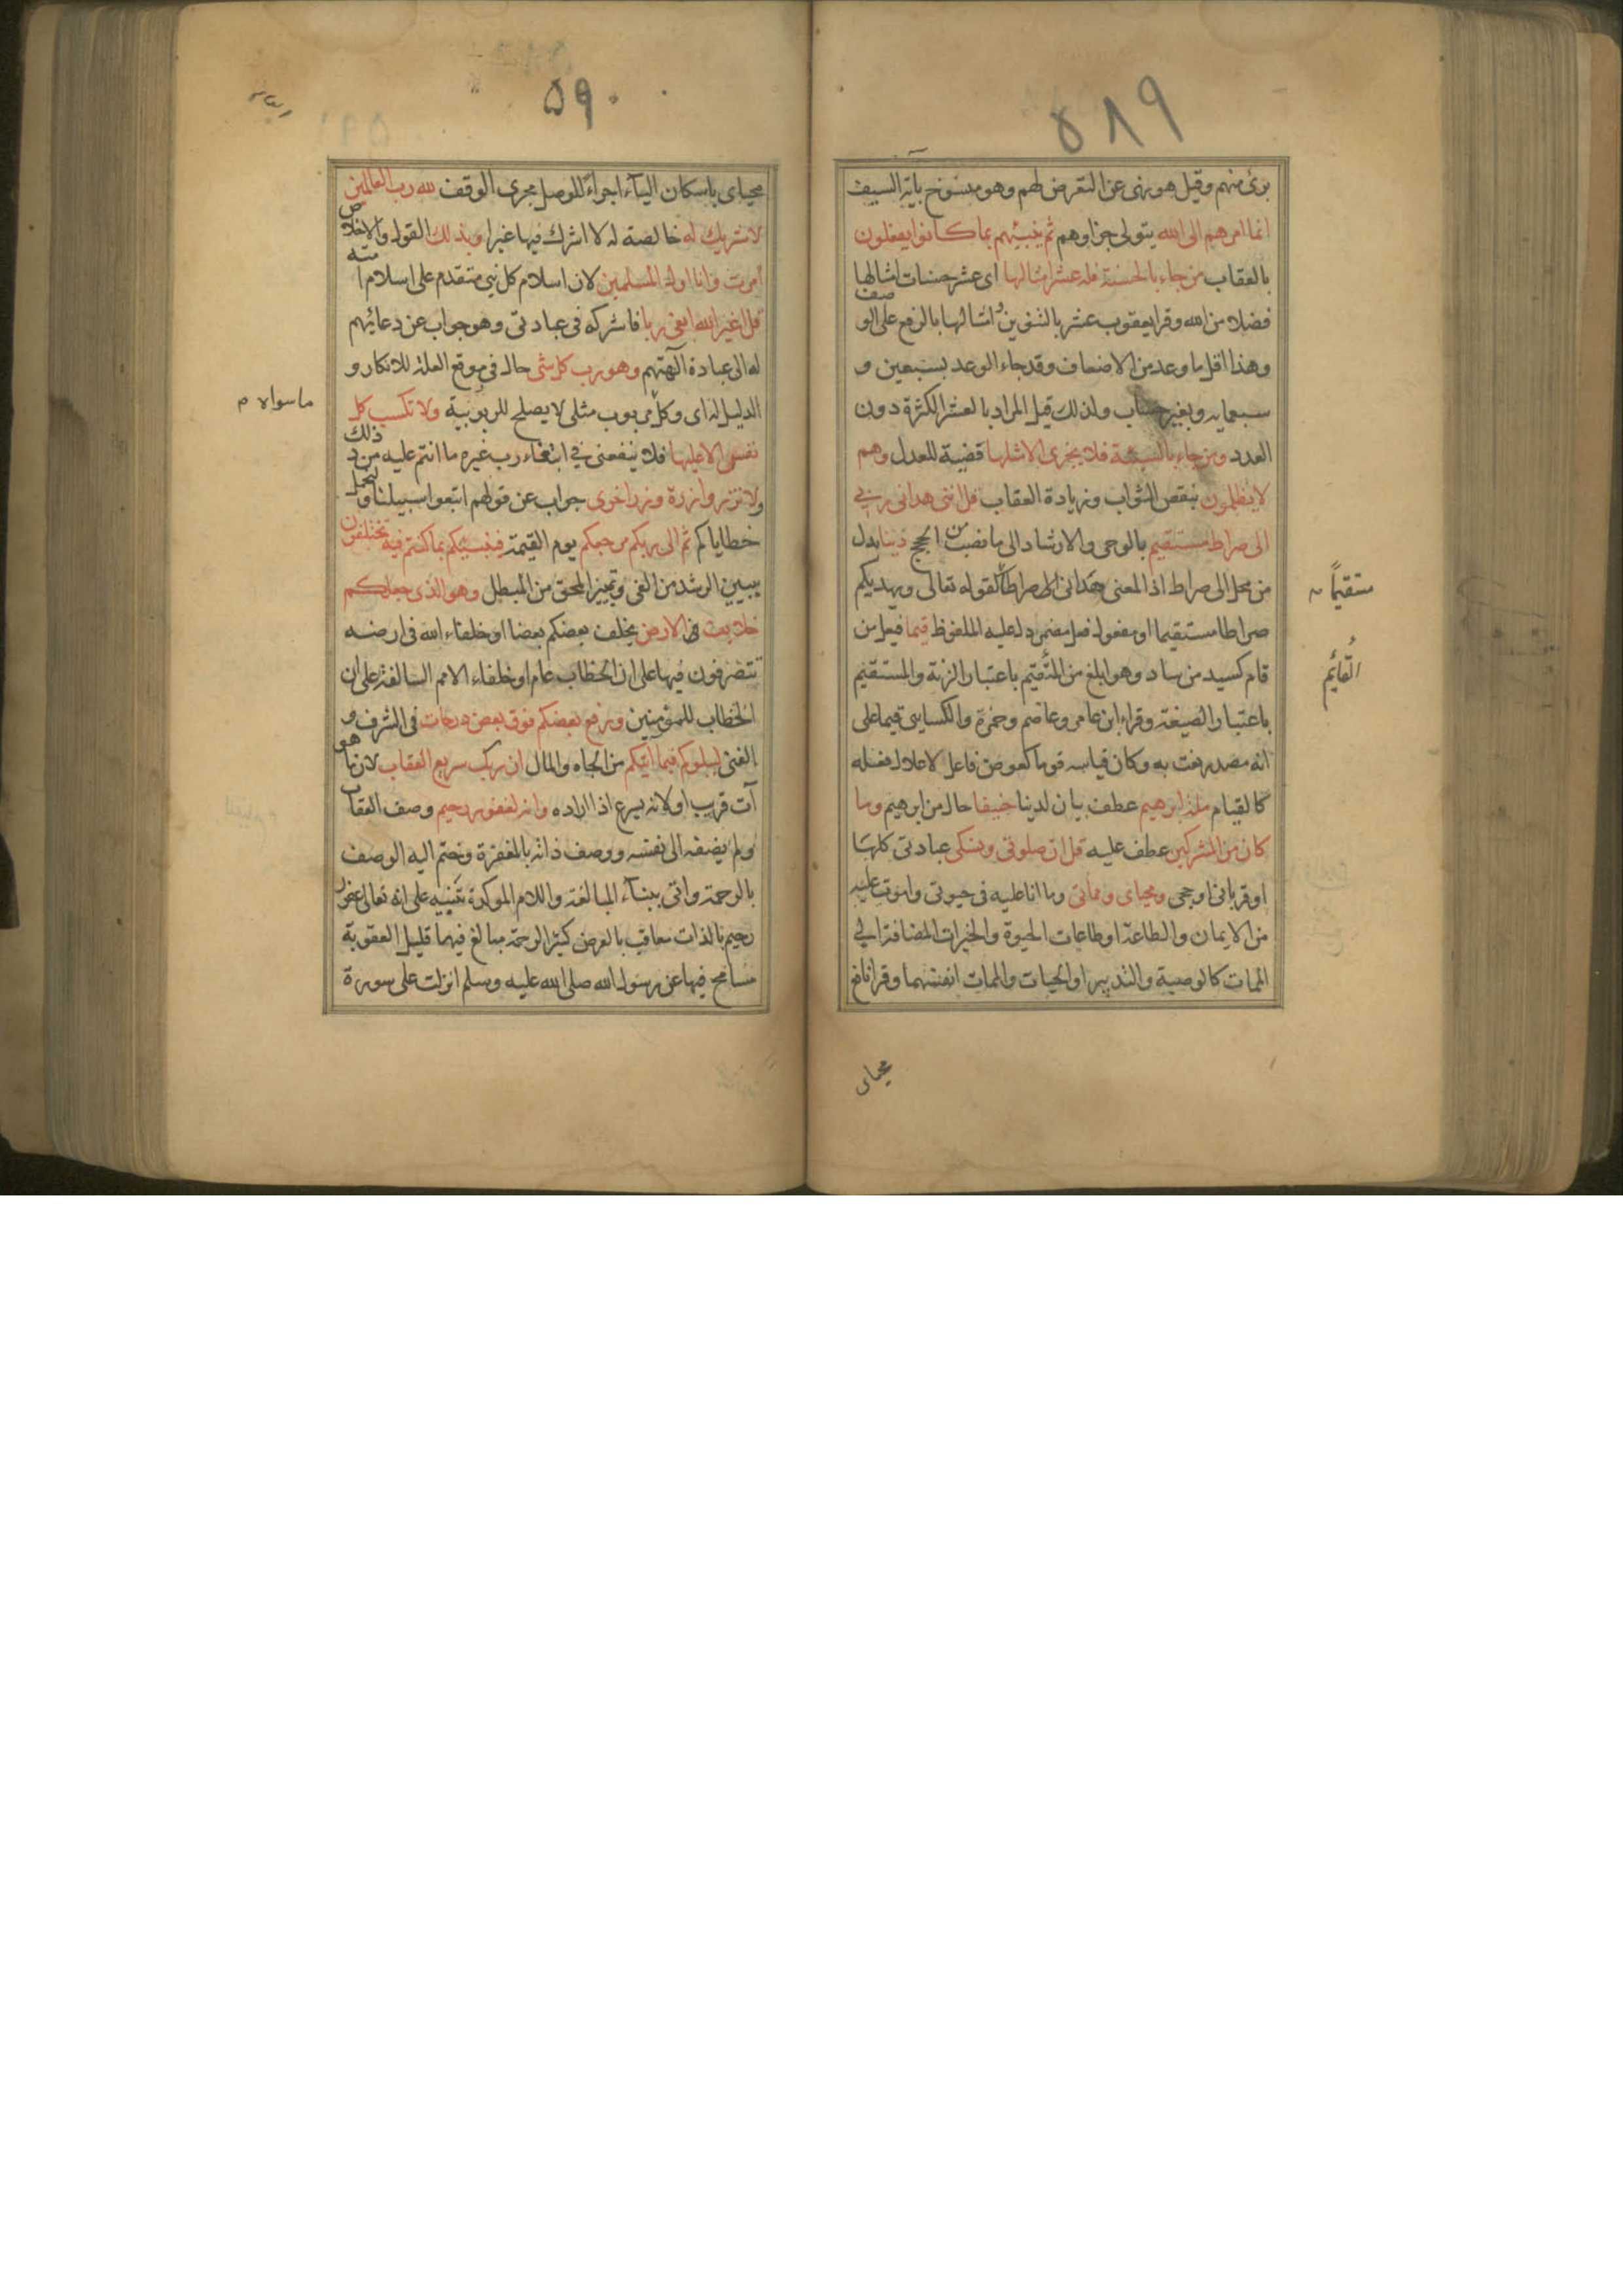 ٥٨٩
برئ منهم وقيل هو نهى عن التعرض لهم وهو منسوخ باية السيف
انما امرهم الى الله يتولى جزاوهم ثم ينبئهم بما كانوا يفعلون
بالعقاب من جاء بالحسنة فله عشر امثالها اى عشر حسنات امثالها
فضلا من الله وقرا يعقوب عشر بالتنوين امثالها بالرفع على الوصف
وهذا اقل ما وعد من الاضعاف وقد جاء الوعد بسبعين و
سبعمايه وبغير حساب ولذلك قيل المراد بالعشر الكثرة دون
العدد ومن جاء بالسيئة فلا يجزى الا مثلها قضية للعدل وهم
لا يظلمون بنقص الثواب وزيادة العقاب قل اننى هدانى ربي
الى صراط مستقيم بالوحى والارشاد الى ما نصب من الحجج دينا بدل
من محل الى صراط اذ المعنى هدانى صراطا كقوله تعالى ويهديكم
مستقيما
صراطا مستقيما او مفعول فعل مضمر دل عليه الملفوظ قيما فيعل من
قام كسيد من ساد وهو ابلغ من المستقيم باعتبار الزنة والمستقيم
القايم
باعتبار الصيغة وقراء ابن عامر وعاصم وحمزة والكسايى قيما على
انه مصدر نعت به وكان قياسه قوما كعوض فاعل لاعلال فعله
كالقيام ملة ابرهيم عطف بيان لدينا حنيفا حال من ابرهيم وما
كان من المشركين عطف عليه قل ان صلوتى ونسكى عبادتى كلها
او قربانى او حجى ومحياى ومماتى وما انا عليه فى حيوتى واموت عليه
من الايمان والطاعة او طاعات الحيوة والخيرات المضافة الي
الممات كالوصية والتدبير او الحيات والممات انفسهما وقرا نافع
محياى
٥٩٠
محياى باسكان اليآء اجراءً للوصل مجرى الوقف لله رب العالمين
لا شريك له خالصة له لا اشرك فيها غيرا وبذلك القول والاخلاص
امرت وانا اول المسلمين لان اسلام كل نبى متقدم على اسلام امته
قل اغير الله ابغى ربا فاشركه فى عبادتى وهو جواب عن دعائهم
له الى عبادة آلهتهم وهو رب كل شى حال فى موقع العلة للانكار و
الدليل له اى وكل مربوب مثلى لا يصلح للربوبية ولا تكسب كل
ماسواه م
نفس الا عليها فلا ينفعنى في ابتغاء رب غيره ما انتم عليه من ذلك
ولا تزر وازرة وزر اخرى جواب عن قولهم اتبعوا سبيلنا ولنحمل
خطاياكم ثم الى ربكم مرجعكم يوم القيمة فينبئكم بما كنتم فيه تختلفون
يبيين الرشد من الغى وتمييز المحق من المبطل وهو الذى جعلكم
خلايف فى الارض يخلف بعضكم بعضا او خلفاء الله فى ارضه
تتصرفون فيها على ان الخطاب عام او خلفاء الامم السالفة على ان
الخطاب للمؤمنين ورفع بعضكم فوق بعض درجات فى الشرف و
الغنى ليبلوكم فيما آتيكم من الجاه والمال ان ربك سريع العقاب لان ما هو
آت قريب او لانه يسرع اذا اراده وانه لغفور رحيم وصف العقاب
ولم يضفه الى نفسه ووصف ذاته بالمغفرة وضم اليه الوصف
بالرحمة واتى ببنآء المبالغة واللام الموكدة تنبيه على انه تعالى غفور
رحيم بالذات معاقب بالعرض كثير الرحمة مبالغ فيهما قليل العقوبة
مسامح فيها عن رسول الله صلى الله عليه وسلم انزلت على سورة